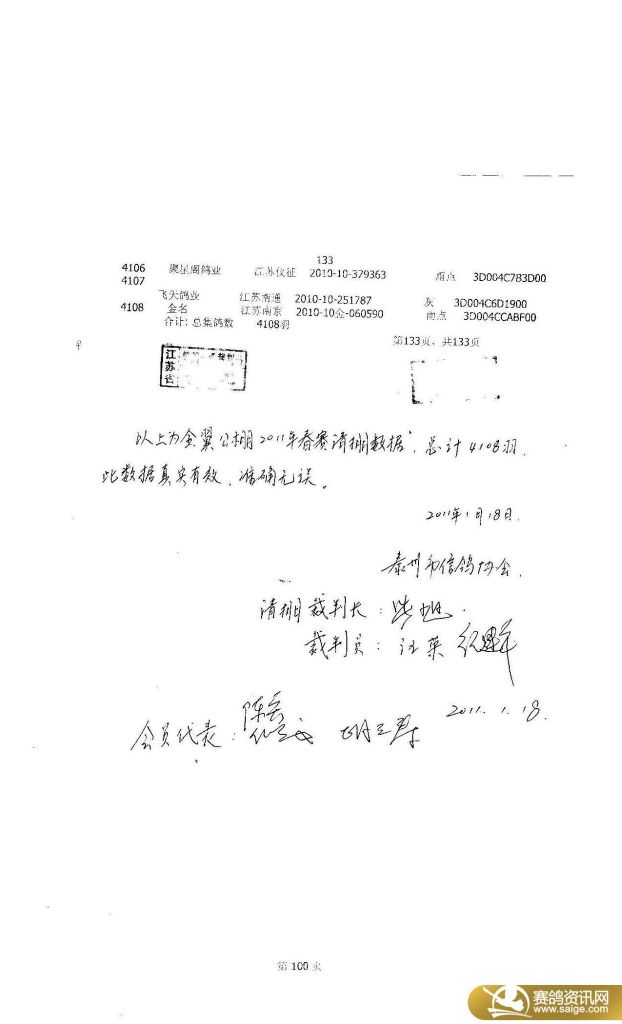 133
4106 聚星阁鸽业 江苏仪征 2010-10-379363 雨点 3D004C783D00
4107
飞天鸽业 江苏南通 2010-10-251787 灰 3D004C6D1900
4108 金名 江苏南京 2010-10企-060590 雨点 3D004CCABF00
合计: 总集鸽数 4108羽
第133页, 共133页
江苏省
以上为金翼公棚2011年春赛清棚数据, 总计4108羽,
此数据真实有效, 准确无误。
2011年1月18日.
泰州市信鸽协会.
清棚裁判长:
裁判员: 汪英
会员代表: 2011.1.18.
第 100 页
赛鸽资讯网
www.saige.com